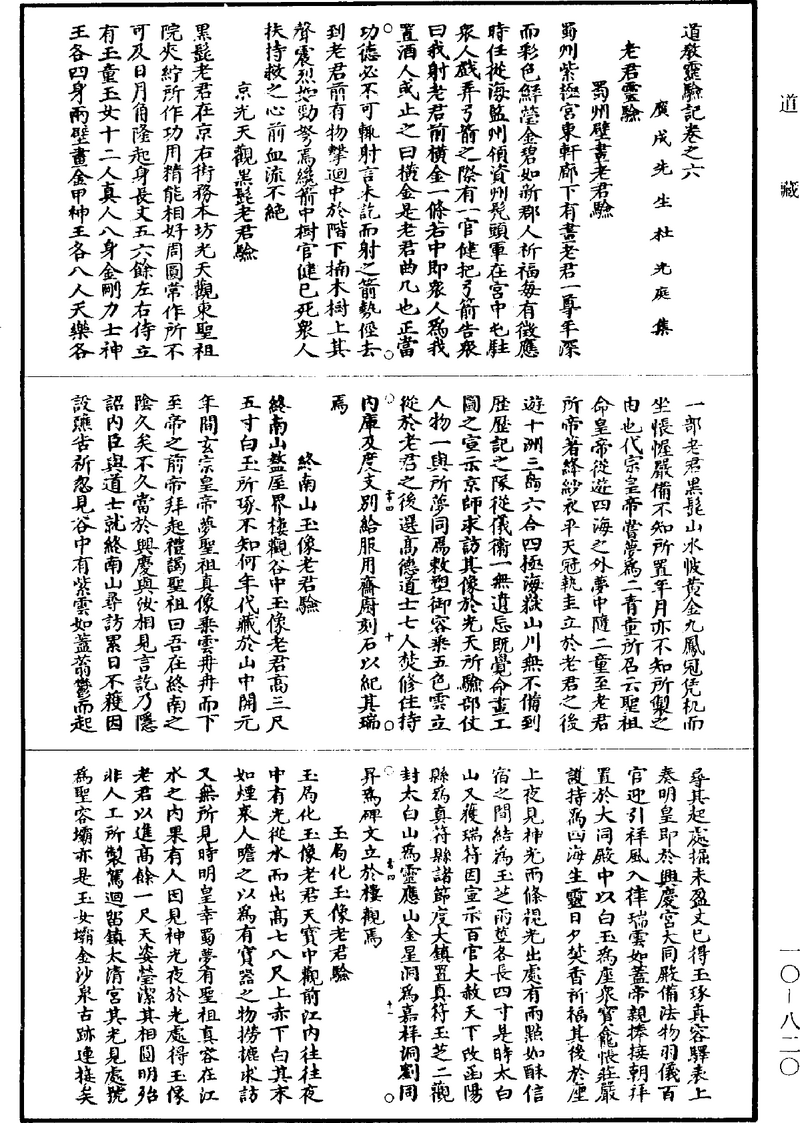 道藏
一〇—八二〇
道教靈驗記卷之六
廣成先生杜光庭集
老君靈驗
蜀州壁畫老君驗
蜀州紫極宮東軒廊下有畫老君一尊年深
而彩色鮮瑩金碧如新郡人祈福每有徵應
時任從海監州領資州髡頭軍在宮中屯駐
衆人戲弄弓箭之際有一官健把弓箭告衆
曰我射老君前橫金一條若中即衆人爲我
置酒人或止之曰橫金是老君曲几也正當
功德必不可輒射言未訖而射之箭勢俓去
到老君前有物擊迴中於階下楠木樹上其
聲震烈如勁弩焉纔箭中樹官健已死衆人
扶持救之心前血流不絕
京光天觀黑髭老君驗
黑髭老君在京右街務本坊光天觀東聖祖
院夾紵所作功用精能相好周圓常作所不
可及日月角隆起身長丈五六餘左右侍立
有玉童玉女十二人真人八身金剛力士神
王各四身兩壁畫金甲神王各八人天樂各
一部老君黑髭山水帔黃金九鳳冠凭机而
坐悵幄嚴備不知所置年月亦不知所製之
由也代宗皇帝嘗夢爲二青童所召云聖祖
命皇帝從遊四海之外夢中隨二童至老君
所帝著絳紗衣平天冠執圭立於老君之後
遊十洲三島六合四極海嶽山川無不備到
歷歷記之隊從儀衛一無遺忘既覺命畫工
圖之宣示京師求訪其像於光天所驗部仗
人物一與所夢同焉敕塑御容乘五色雲立
從於老君之後選高德道士七人焚修住持
內庫及度支別給服用齋廚刻石以紀其瑞
焉
終南山玉像老君驗
終南山盩厔界棲觀谷中玉像老君高三尺
五寸白玉所琢不知何年代藏於山中開元
年間玄宗皇帝夢聖祖真像乘雲冉冉而下
至帝之前帝拜起禮謁聖祖曰吾在終南之
陰久矣不久當於興慶與汝相見言訖乃隱
詔內臣與道士就終南山尋訪累日不獲因
設醮告祈忽見谷中有紫雲如蓋蓊鬱而起
尋其起處掘未盈丈已得玉琢真容驛表上
奏明皇即於興慶宮大同殿備法物羽儀百
官迎引祥風入律瑞雲如蓋帝親捧接朝拜
置於大同殿中以白玉爲座衆寶龕帳莊嚴
護持爲四海生靈日夕焚香祈福其後於座
上夜見神光兩條視光出處有兩點如酥信
宿之間結爲玉芝兩莖各長四寸是時太白
山又獲瑞符因宣示百官大赦天下改函陽
縣爲真符縣諸節度大鎮置真符玉芝二觀
封太白山爲靈應山金星洞爲嘉祥洞劉同
昇爲碑文立於棲觀焉
玉局化玉像老君驗
玉局化玉像老君天寶中觀前江內往往夜
中有光從水而出高七八尺上赤下白其末
如煙衆人瞻之以爲有寶器之物撈摝求訪
又無所見時明皇幸蜀夢有聖祖真容在江
水之內果有人因見神光夜於光處得玉像
老君以進高餘一尺天姿瑩潔其相圓明殆
非人工所製駕迴留鎮太清宮其光見處號
爲聖容壩亦是玉女壩金沙泉古跡連接矣